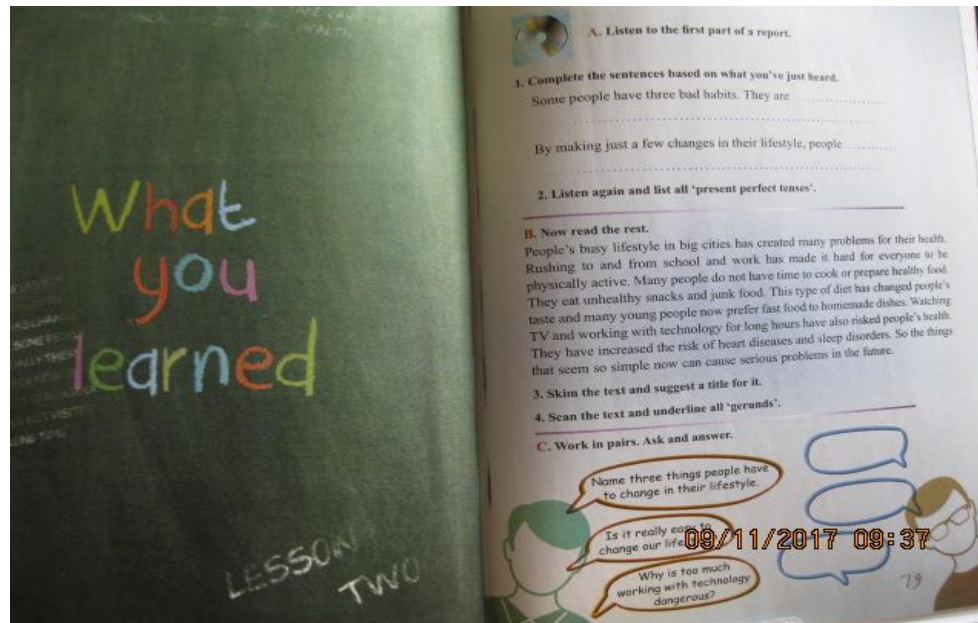 What
you
learned
LESSON
TWO
A. Listen to the first part of a report.
1. Complete the sentences based on what you've just heard.
Some people have three bad habits. They are
By making just a few changes in their lifestyle, people
2. Listen again and list all 'present perfect tenses'.
B. Now read the rest.
People's busy lifestyle in big cities has created many problems for their health.
Rushing to and from school and work has made it hard for everyone to be
physically active. Many people do not have time to cook or prepare healthy food.
They eat unhealthy snacks and junk food. This type of diet has changed people's
taste and many young people now prefer fast food to homemade dishes. Watching
TV and working with technology for long hours have also risked people's health.
They have increased the risk of heart diseases and sleep disorders. So the things
that seem so simple now can cause serious problems in the future.
3. Skim the text and suggest a title for it.
4. Scan the text and underline all 'gerunds'.
C. Work in pairs. Ask and answer.
Name three things people have
to change in their lifestyle.
Is it really easy to
change our
Why is too much
working with technology
dangerous?
09/11/2017 09:37
79